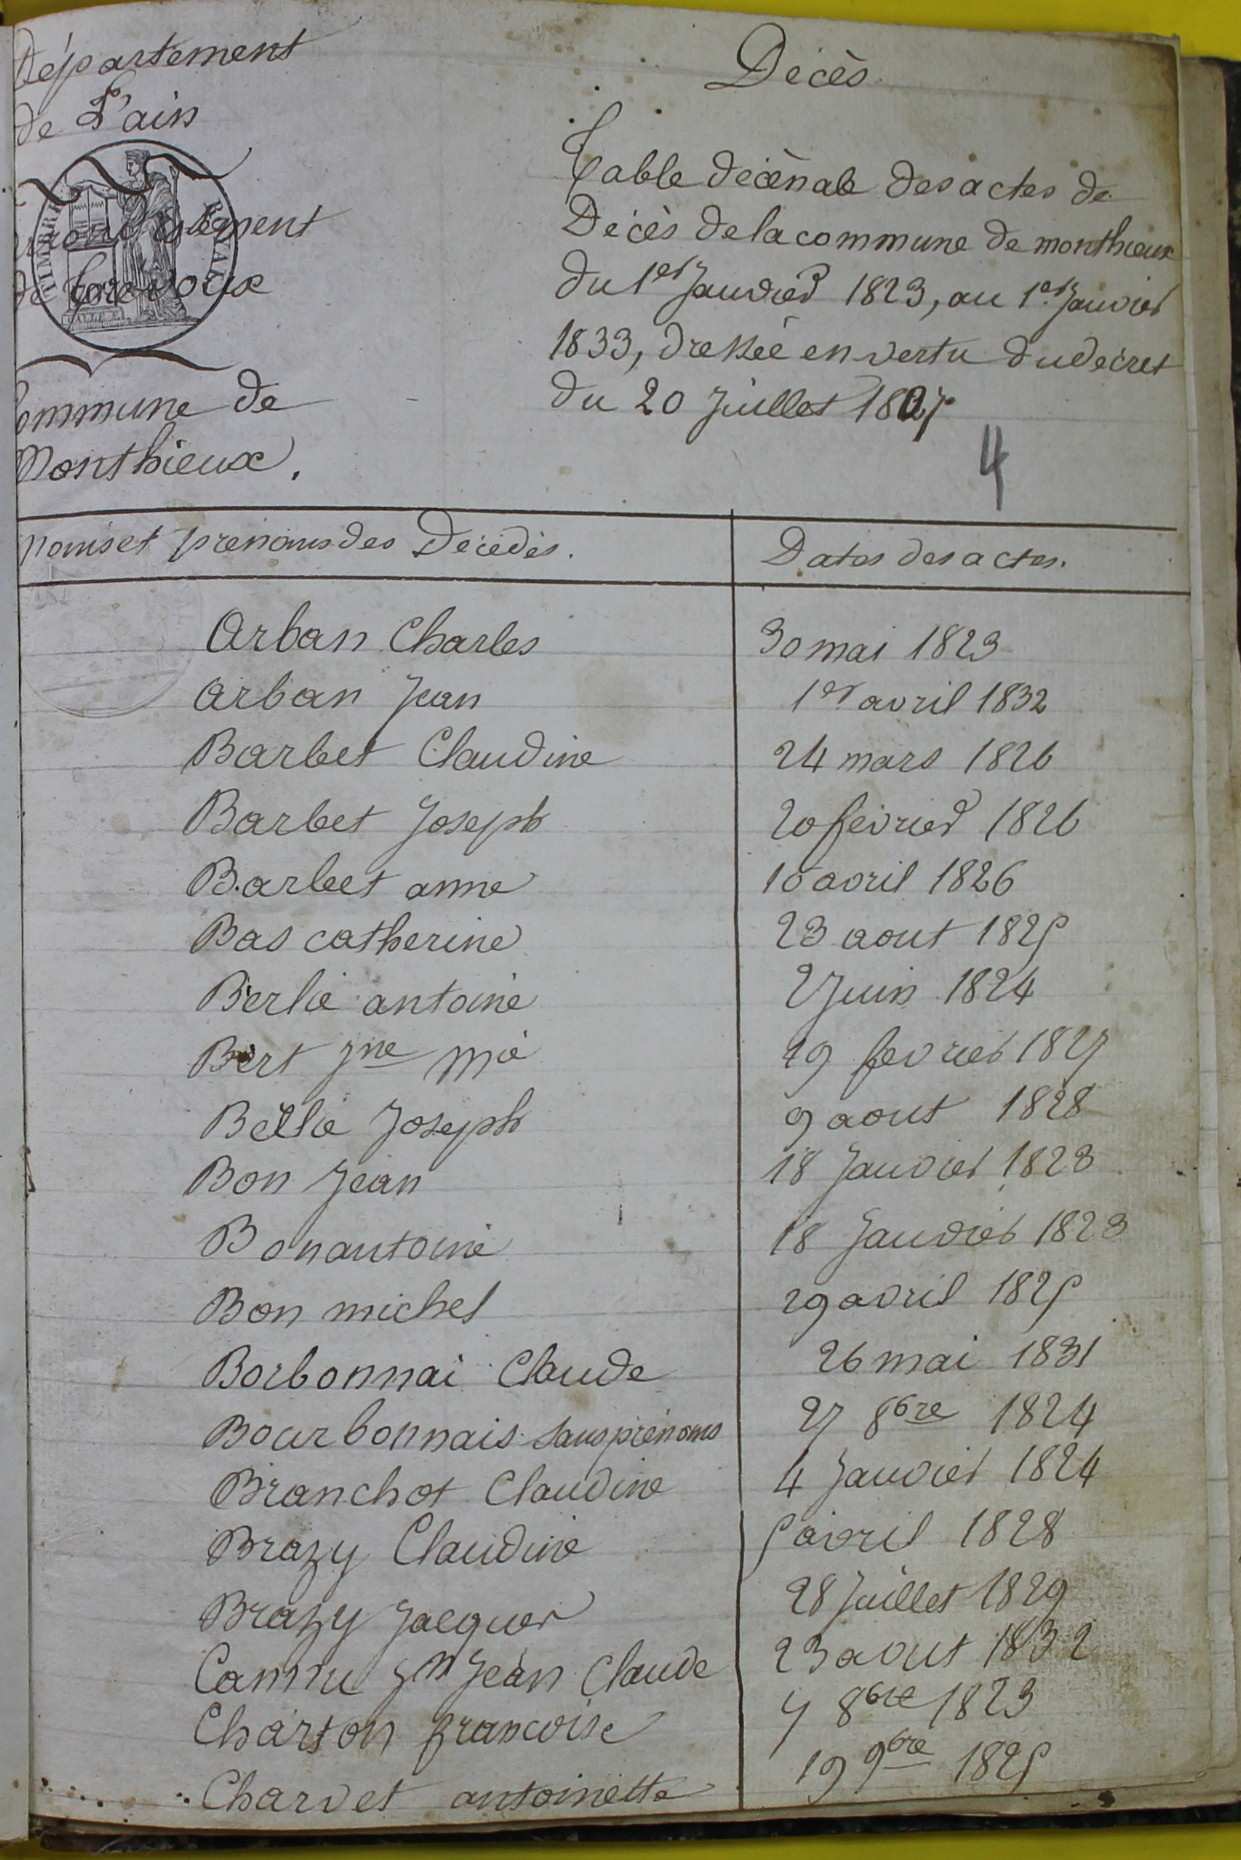 Département
de L'ain
TIMBRE ROYAL
arrondissement
de trevoux
Commune de
Monthieux.
Décès
Table décènale des actes de
Décès de la commune de monthieux
du 1er Janvier 1823, au 1er Janvier
1833, dressée en vertu du décret
du 20 Juillet 1807
4
Noms et prénoms des Décédés. Dates des actes.
Arban Charles 30 mai 1823
Arban Jean 1er avril 1832
Barbet Claudine 24 mars 1826
Barbet Joseph 20 février 1826
Barbet anne 10 avril 1826
Bas catherine 23 aout 1825
Berlie antoine 2 Juin 1824
Bert Jne Mie 29 fevrier 1827
Bellie Joseph 9 aout 1828
Bon Jean 18 Janvier 1823
Bon antoine 18 Janvier 1823
Bon michel 29 avril 1825
Borbonnai Claude 26 mai 1831
Bourbonnais sans prénoms 27 8bre 1824
Branchot Claudine 4 Janvier 1824
Brazy Claudine 5 avril 1828
Brazy Jacques 28 Juillet 1829
Cannu Jn Jean Claude 23 aout 1832
Charton francoise 7 8bre 1823
Charvet antoinette 19 9bre 1825